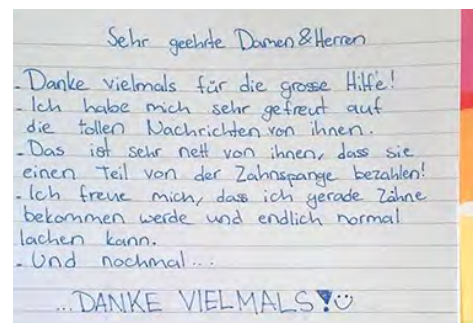 Sehr geehrte Damen & Herren
- Danke vielmals für die grosse Hilfe!
- Ich habe mich sehr gefreut auf
die tollen Nachrichten von ihnen.
- Das ist sehr nett von ihnen, dass sie
einen Teil von der Zahnspange bezahlen!
- Ich freue mich, dass ich gerade Zähne
bekommen werde und endlich normal
lachen kann.
- Und nochmal...
...DANKE VIELMALS!☺